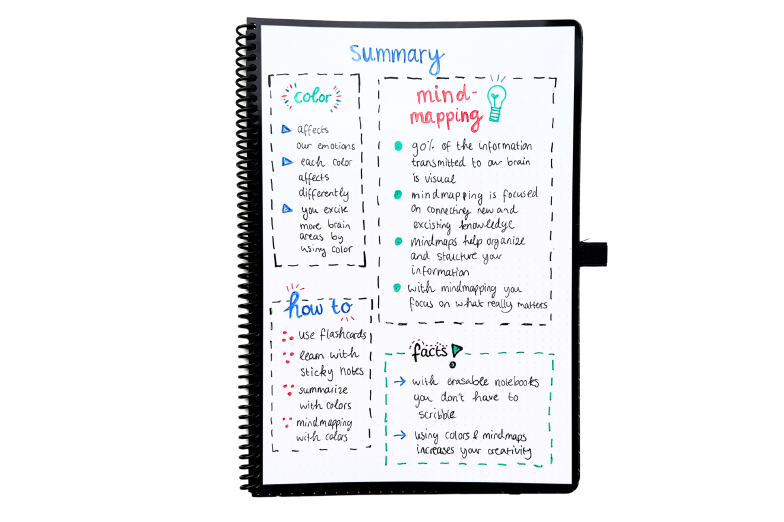 summary
color
affects
our emotions
each color
affects
differently
you excite
more brain
areas by
using color
mind-
mapping
90% of the information
transmitted to our brain
is visual
mindmapping is focused
on connecting new and
excisting knowledge
mindmaps help organize
and structure your
information
with mindmapping you
focus on what really matters
how to
use flashcards
learn with
sticky notes
summarize
with colors
mindmapping
with colors
facts
with erasable notebooks
you don't have to
scribble
using colors & mindmaps
increases your creativity